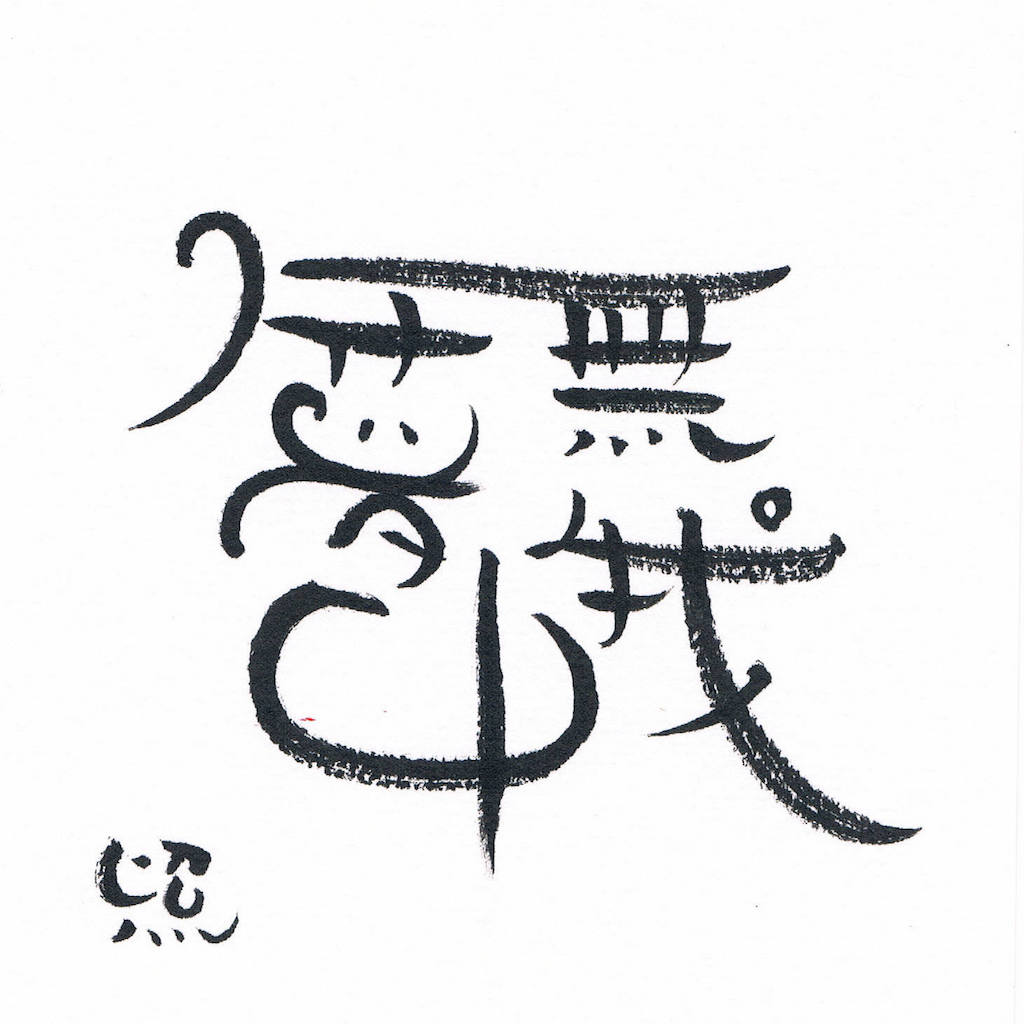 無我
夢中
照